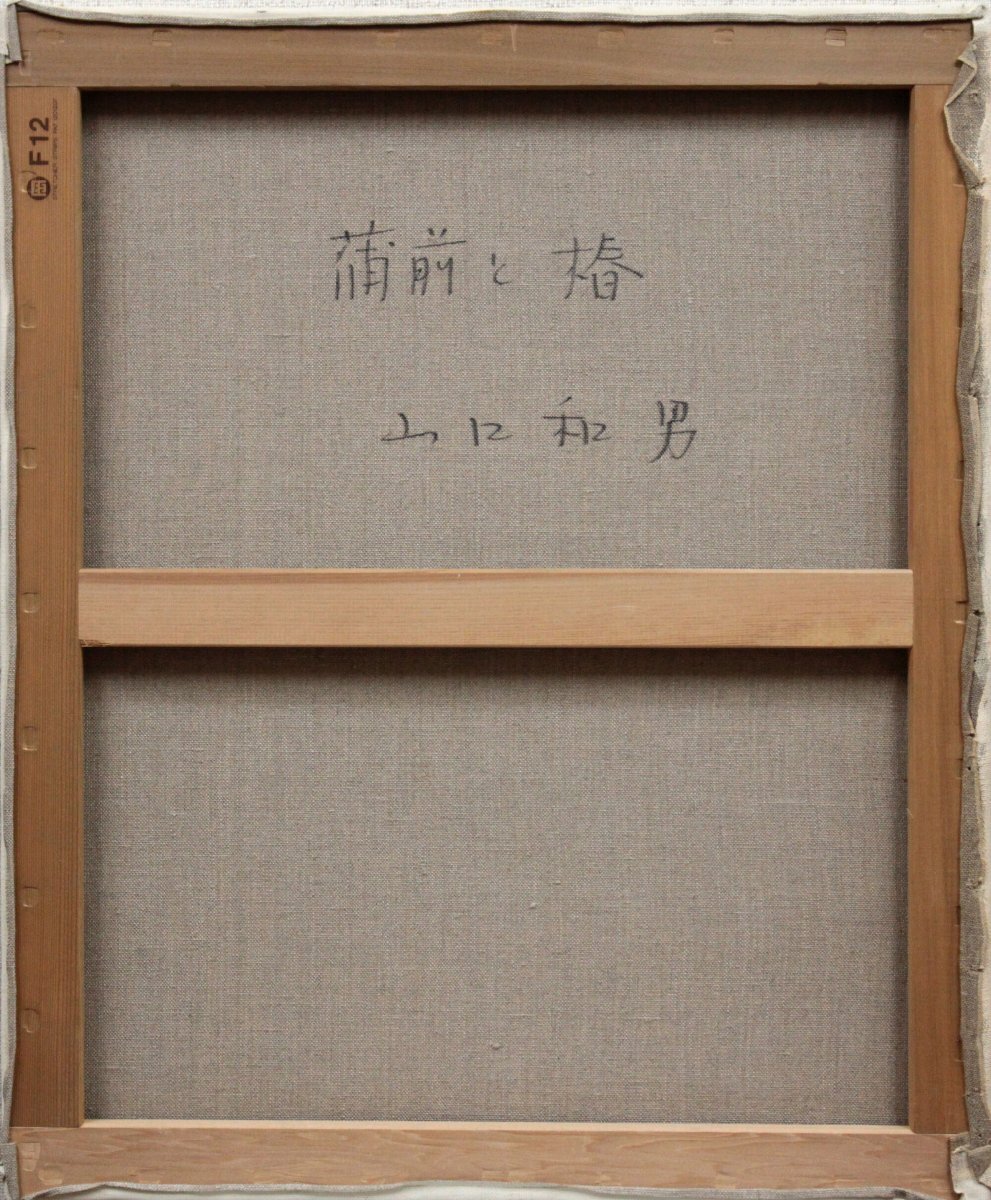 F12
蒲前と椿
山口和男